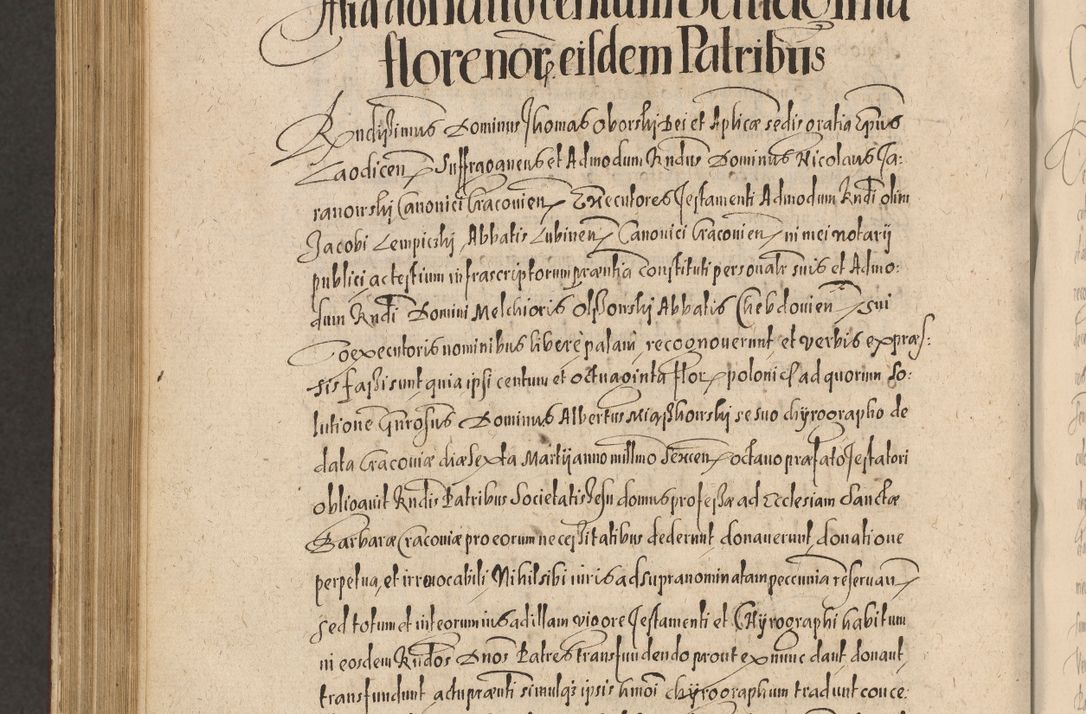 Alia donatio centum octuaginta
florenor eisdem Patribus
Rndissimus Dominus Thomas Oborskij Dei et Aplicæ sedis gratia Epus
Laodicen Suffraganeus et Admodum Rndus Dominus Nicolaus Ja:
ranowskij Canonici Cracouien Executores Testamenti Admodum Rndi olim
Jacobi Lempiczkij Abbatis Lubinen Canonici Cracouien in mei notarij
publici ac testium infrascriptorum præntia constituti personalr suis et Admo:
dum Rndi Domini Melchioris Olssowskij Abbatis Chebdouien sui
Coexecutoris nominibus libere palam recognouerunt et verbis expræs:
sis fassi sunt quia ipsi centum et octuaginta flor polonicl ad quorum so:
lutione Gnrosus Dominus Albertus Miąsskowskij se suo chyrographo de
data Cracouiæ die Sexta Martij anno millmo Sexcen octauo præfato Testatori
obligauit Rndis Patribus Societatis Jesu domus professæ ad Ecclesiam Sanctæ
Barbaræ Cracouiæ pro eorum necessitatibus dederunt donauerunt donatione
perpetua, et irreuocabili Nihil sibi iuris ad supranominatam peccunia reseruan
sed totum et integrum ius ad illam vigore Testamenti et Chyrographi habitum
in eosdem Rndos Dnos Patres transfundendo prout ex nunc dant donant
transfundunt actu prænti simulqz ipsis hmoi chyrographum tradunt conce: